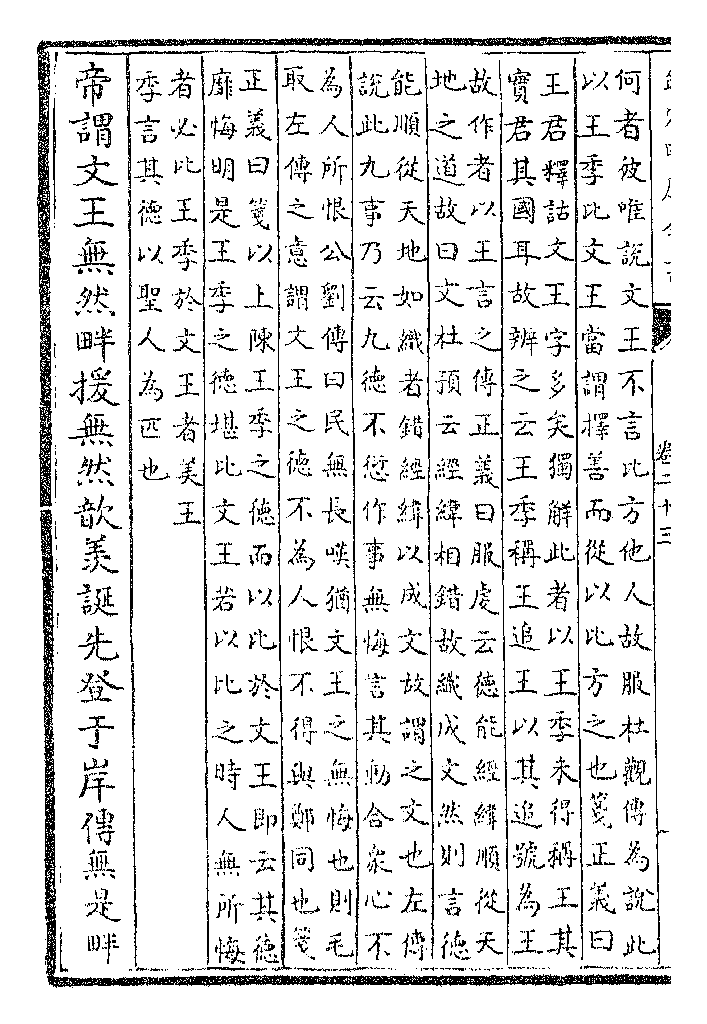 卷二十三
何者彼唯說文王不言比方他人故服杜觀傳為說此
以王季比文王當謂擇善而從以比方之也箋正義曰
王君釋詁文王字多矣獨解此者以王季未得稱王其
實君其國耳故辨之云王季稱王追王以其追號為王
故作者以王言之傳正義曰服虔云德能經緯順從天
地之道故曰文杜預云經緯相錯故織成文然則言德
能順從天地如織者錯經緯以成文故謂之文也左傳
說此九事乃云九德不愆作事無悔言其動合衆心不
為人所恨公劉傳曰民無長嘆猶文王之無悔也則毛
取左傳之意謂文王之德不為人恨不得與鄭同也箋
正義曰箋以上陳王季之德而以比於文王即云其德
靡悔明是王季之德堪比文王若以比之時人無所悔
者必比王季於文王者美王
季言其德以聖人為匹也
帝謂文王無然畔援無然歆羨誕先登于岸傳無是畔